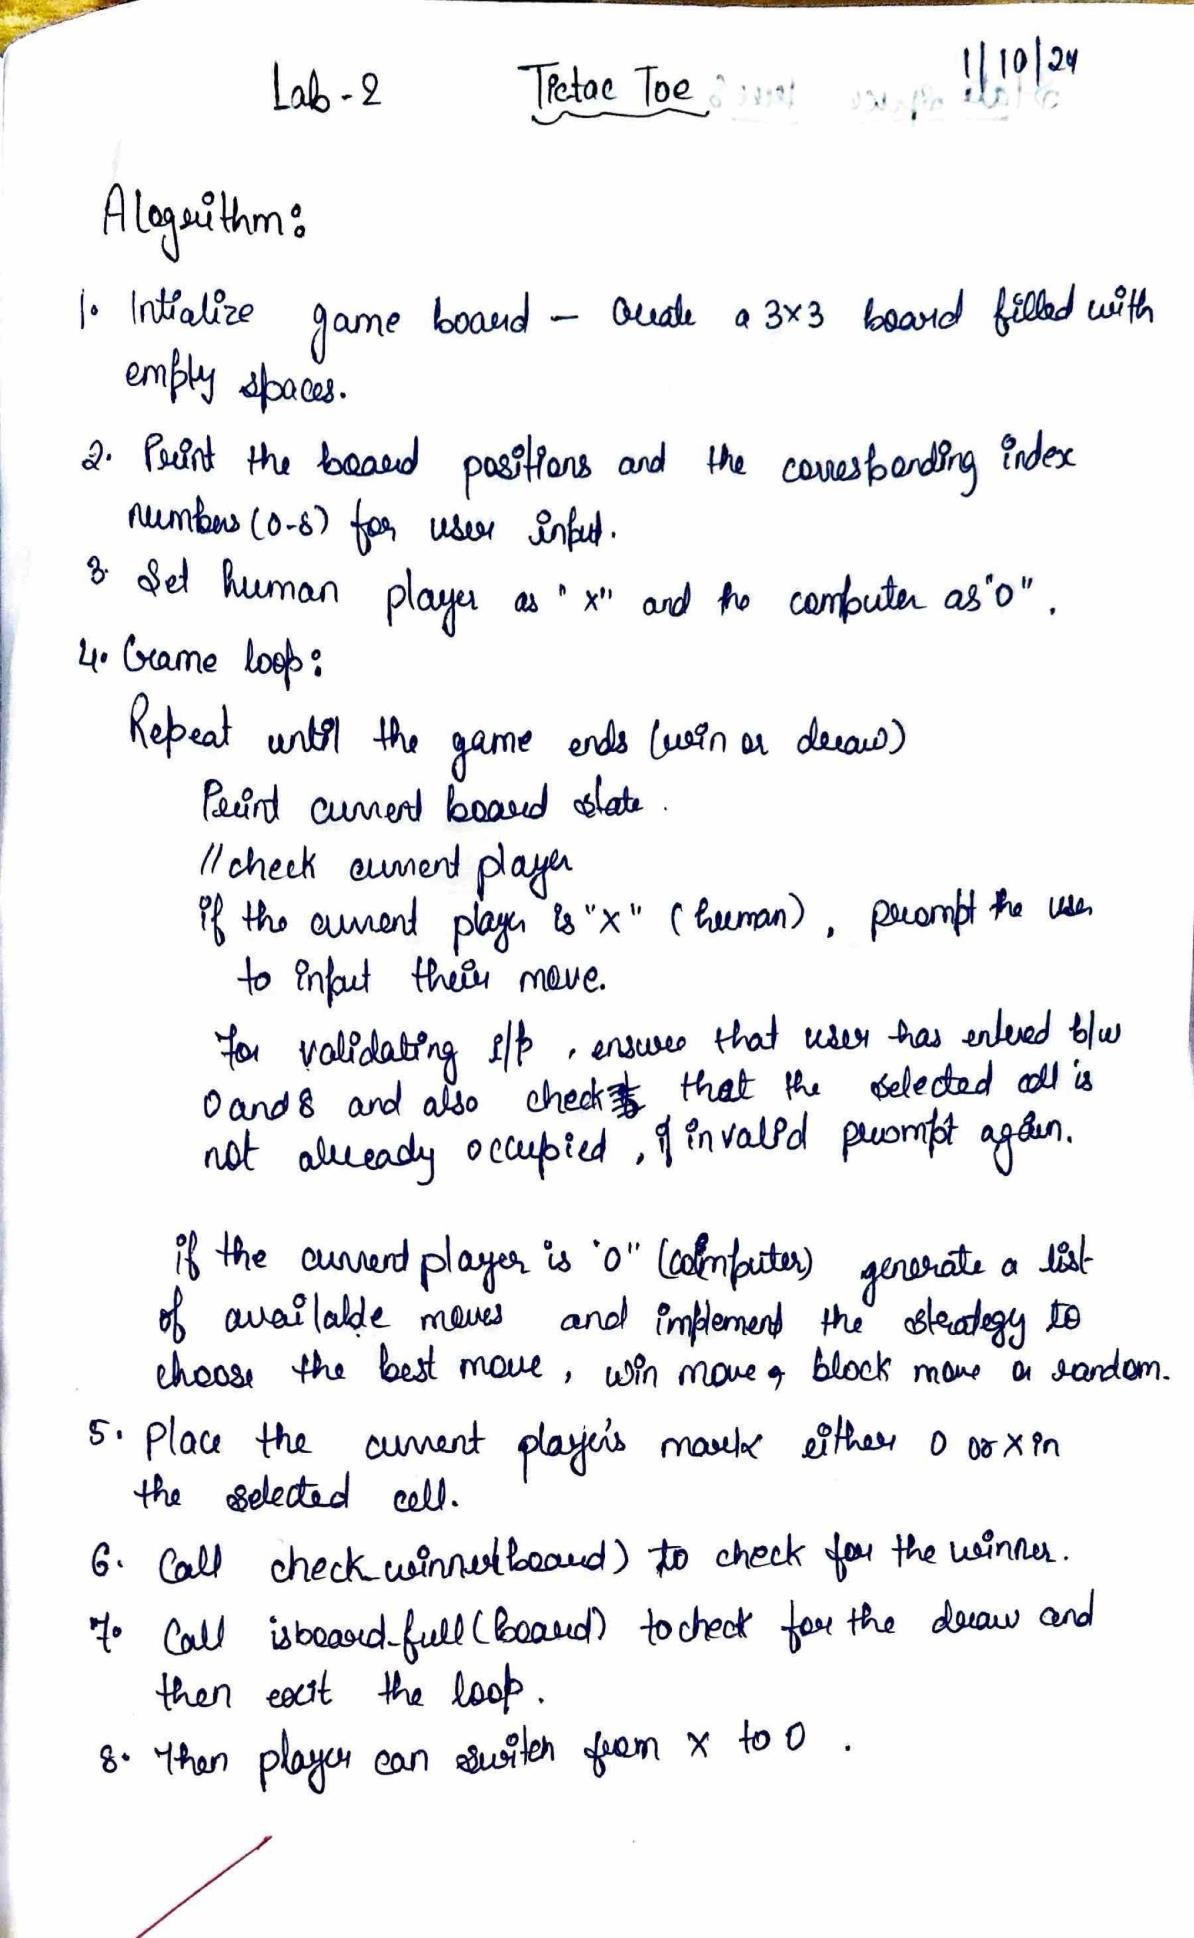 Lab-2 Tictac Toe 1/10/24
Alogrithm:
1. Intialize game board - Create a 3x3 board filled with
empty spaces.
2. Print the board positions and the corresponding index
numbers (0-8) for user input.
3. Set human player as "X" and the computer as "0".
4. Game loop:
Repeat until the game ends (win or draw)
Print current board state.
//check current player
if the current player is "X" (human), prompt the user
to input their move.
For validating i/p, ensure that user has entered b/w
0 and 8 and also check that the selected cell is
not already occupied, if invalid prompt again.
if the current player is "0" (computer) generate a list
of available moves and implement the strategy to
choose the best move, win move, block move or random.
5. Place the current player's mark either 0 or X in
the selected cell.
6. Call check_winner(board) to check for the winner.
7. Call isboard_full(board) to check for the draw and
then exit the loop.
8. Then player can switch from X to 0.